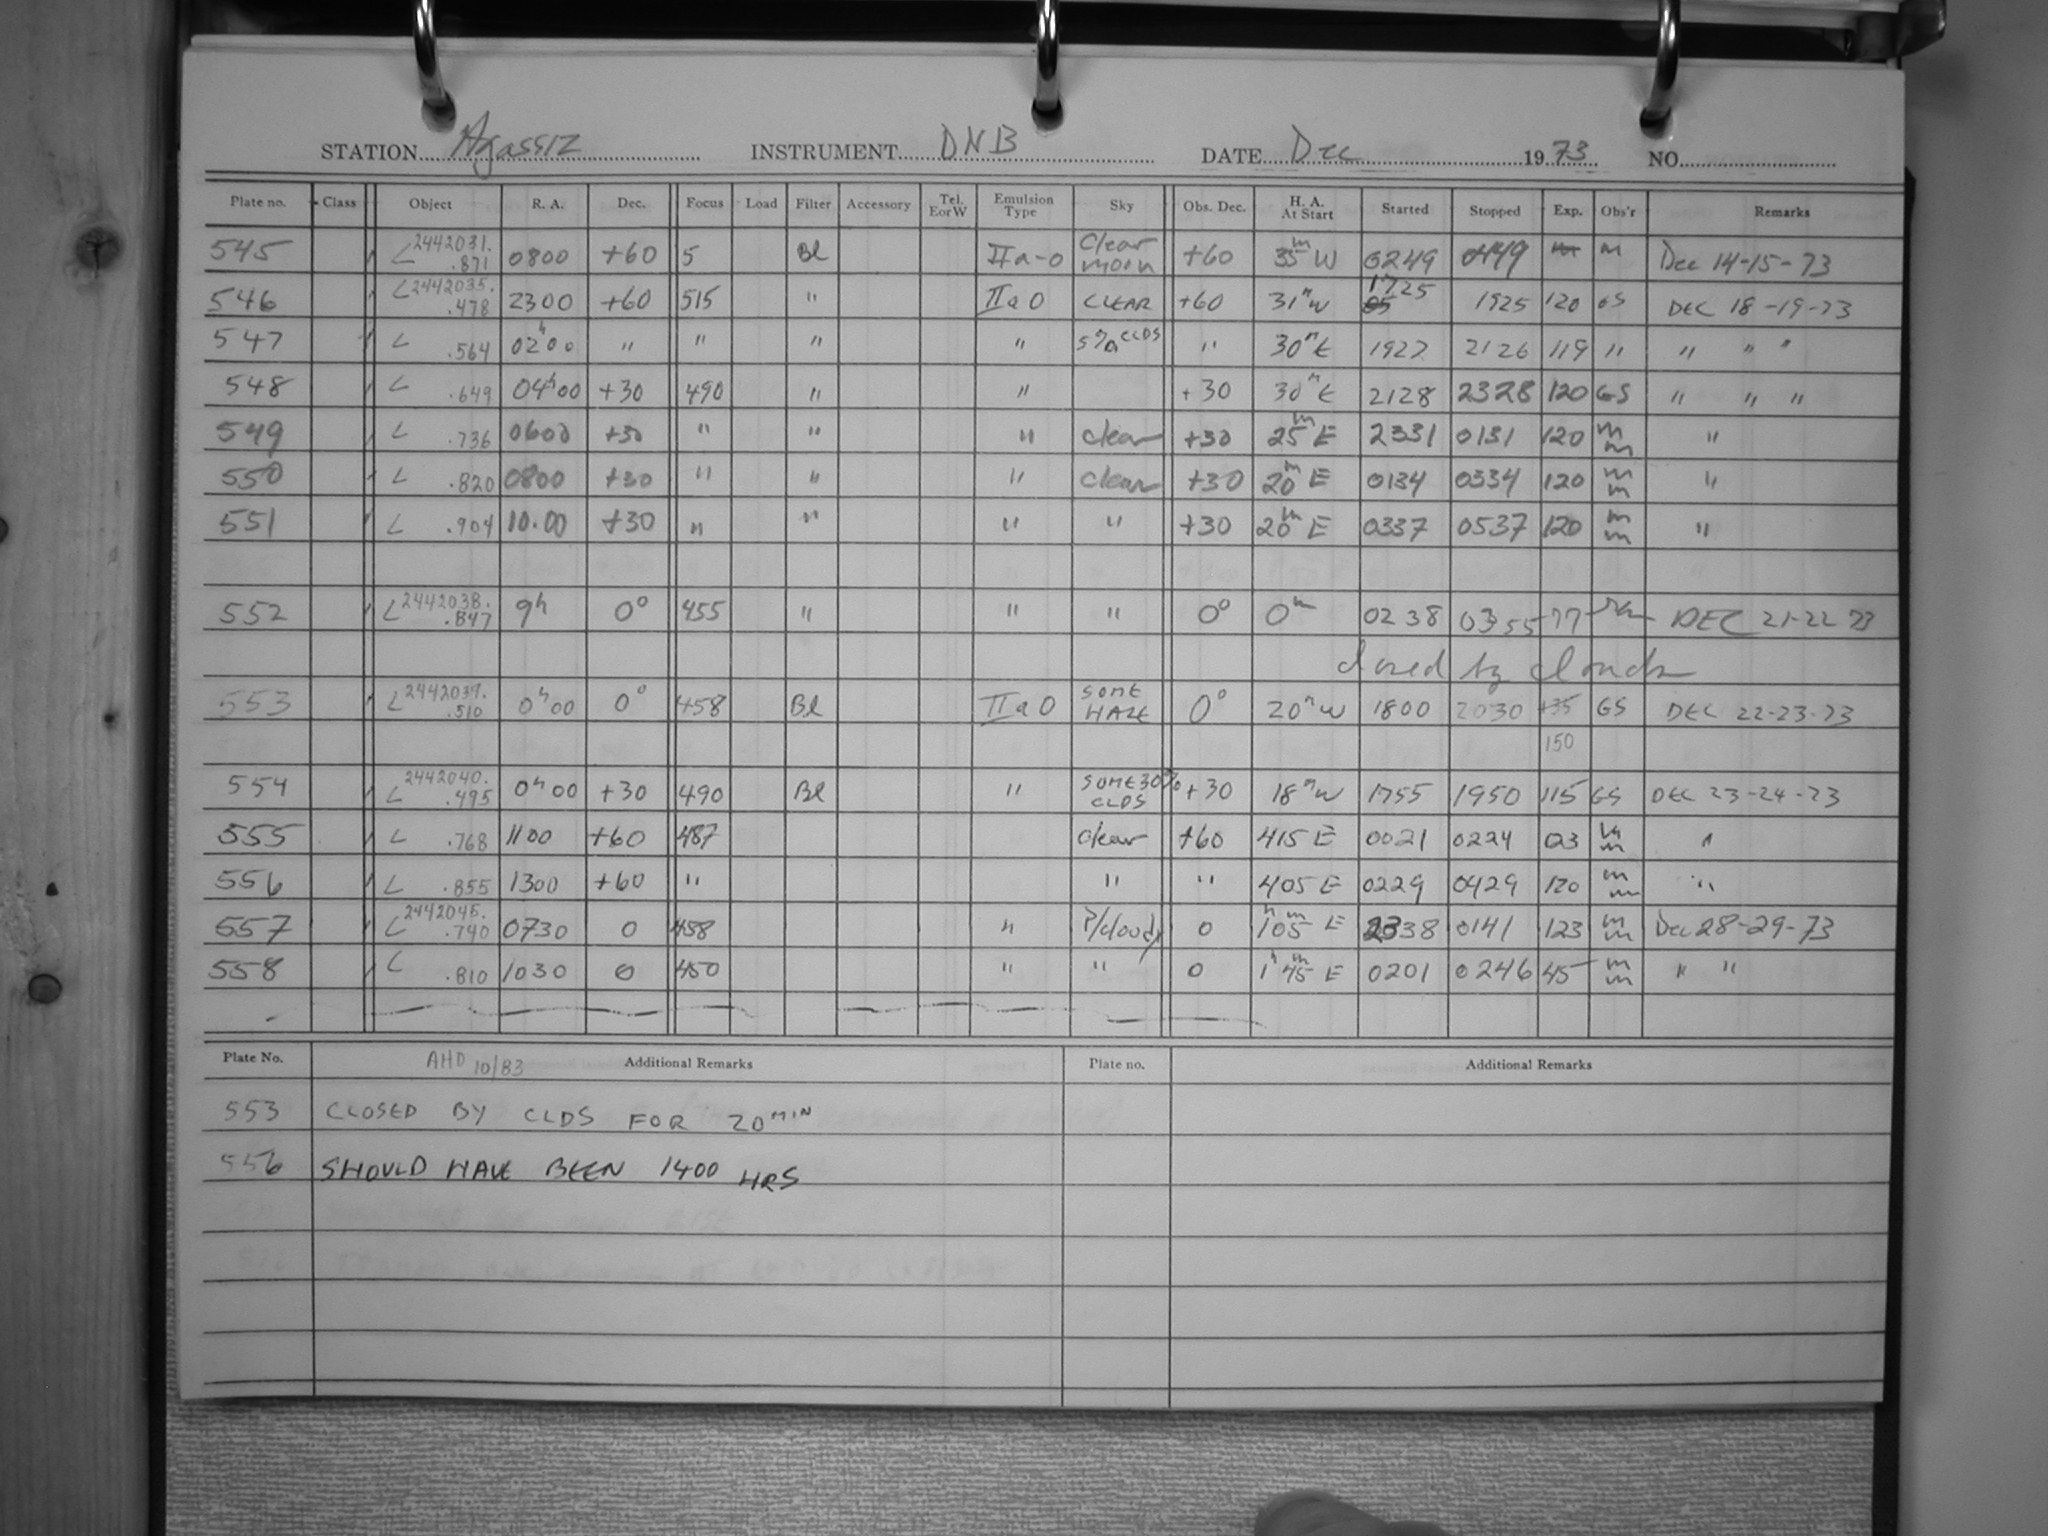 STATION Agassiz INSTRUMENT DNB DATE Dec 1973 NO.
Plate no. Class Object R. A. Dec. Focus Load Filter Accessory Tel. E or W Emulsion Type Sky Obs. Dec. H. A. At Start Started Stopped Exp. Obs'r Remarks
545 L 2442031. .871 0800 +60 5 Bl IIa-O Clear moon +60 35m W 0249 0449 m Dec 14-15-73
546 L 2442035. .478 2300 +60 515 " IIaO CLEAR +60 31m W 1725 1925 120 GS DEC 18-19-73
547 L .564 02h00 " " " " 5% CLDS " 30m E 1927 2126 119 " " " "
548 L .649 04h00 +30 490 " " +30 30m E 2128 2328 120 GS " " "
549 L .736 0600 +30 " " " clear +30 25m E 2331 0131 120 m m "
550 L .820 0800 +30 " " " clear +30 20m E 0134 0334 120 m m "
551 L .904 10.00 +30 " " " " +30 20m E 0337 0537 120 m m "
552 L 2442038. .847 9h 0° 455 " " " 0° 0m 0238 0355 77 DEC 21-22 73
closed by clouds
553 L 2442039. .510 0h00 0° 458 Bl IIaO SOME HAZE 0° 20m W 1800 2030 135 GS DEC 22-23-73
150
554 L 2442040. .495 0h00 +30 490 Bl " SOME 30% CLDS +30 18m W 1755 1950 115 GS DEC 23-24-73
555 L .768 1100 +60 487 clear +60 415 E 0021 0224 123 m m "
556 L .855 1300 +60 " " " 405 E 0229 0429 120 m m "
557 L 2442045. .740 0730 0 458 " P/cloudy 0 1h05m E 2338 0141 123 m m Dec 28-29-73
558 L .810 1030 0 450 " " 0 1h45m E 0201 0246 45 m m " "
Plate No. AHD 10/83 Additional Remarks Plate no. Additional Remarks
553 CLOSED BY CLDS FOR 20 MIN
556 SHOULD HAVE BEEN 1400 HRS